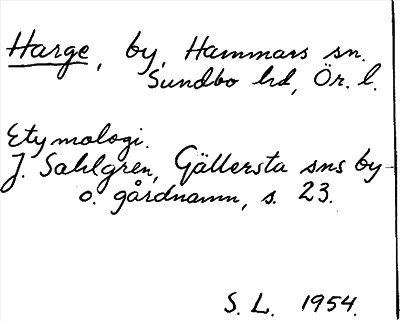 Harge, by, Hammars sn.
Sundbo hd, Ör. l.
Etymologi.
J. Sahlgren, Gällersta sns by-
o. gårdnamn, s. 23.
S. L. 1954.